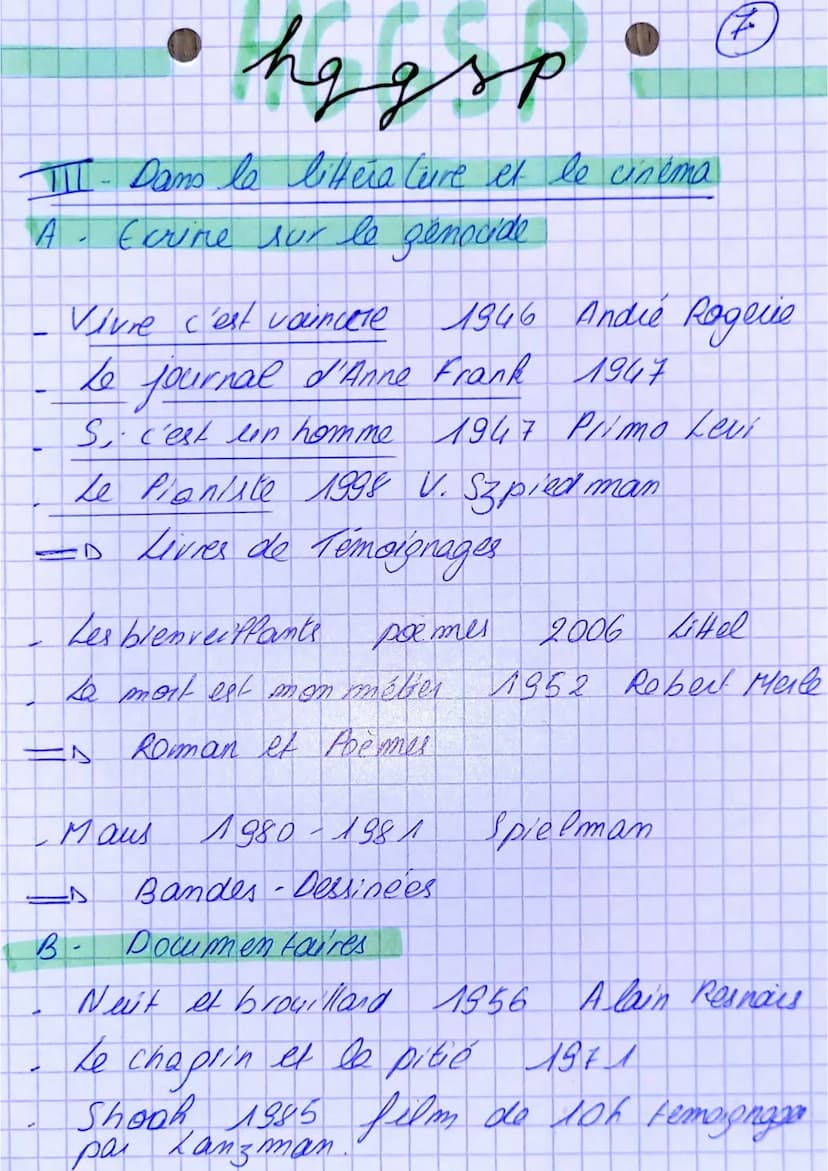 HGGSP
hggsp
7
III - Dans la littérature et le cinéma
A - Ecrire sur le génocide
- Vivre c'est vaincre 1946 André Rogerie
- Le journal d'Anne Frank 1947
- Si c'est un homme 1947 Primo Levi
- Le Pianiste 1998 V. Szpiedman
=> Livres de Témoignages
- Les bienveillants poèmes 2006 Littel
- La mort est mon métier 1952 Robert Merle
=> Roman et Poèmes
- Maus 1980-1981 Spielman
=> Bandes-Dessinées
B - Documentaires
- Nuit et brouillard 1956 Alain Resnais
- Le chagrin et la pitié 1971
- Shoah 1985 film de 10h témoignages
par Lanzman.